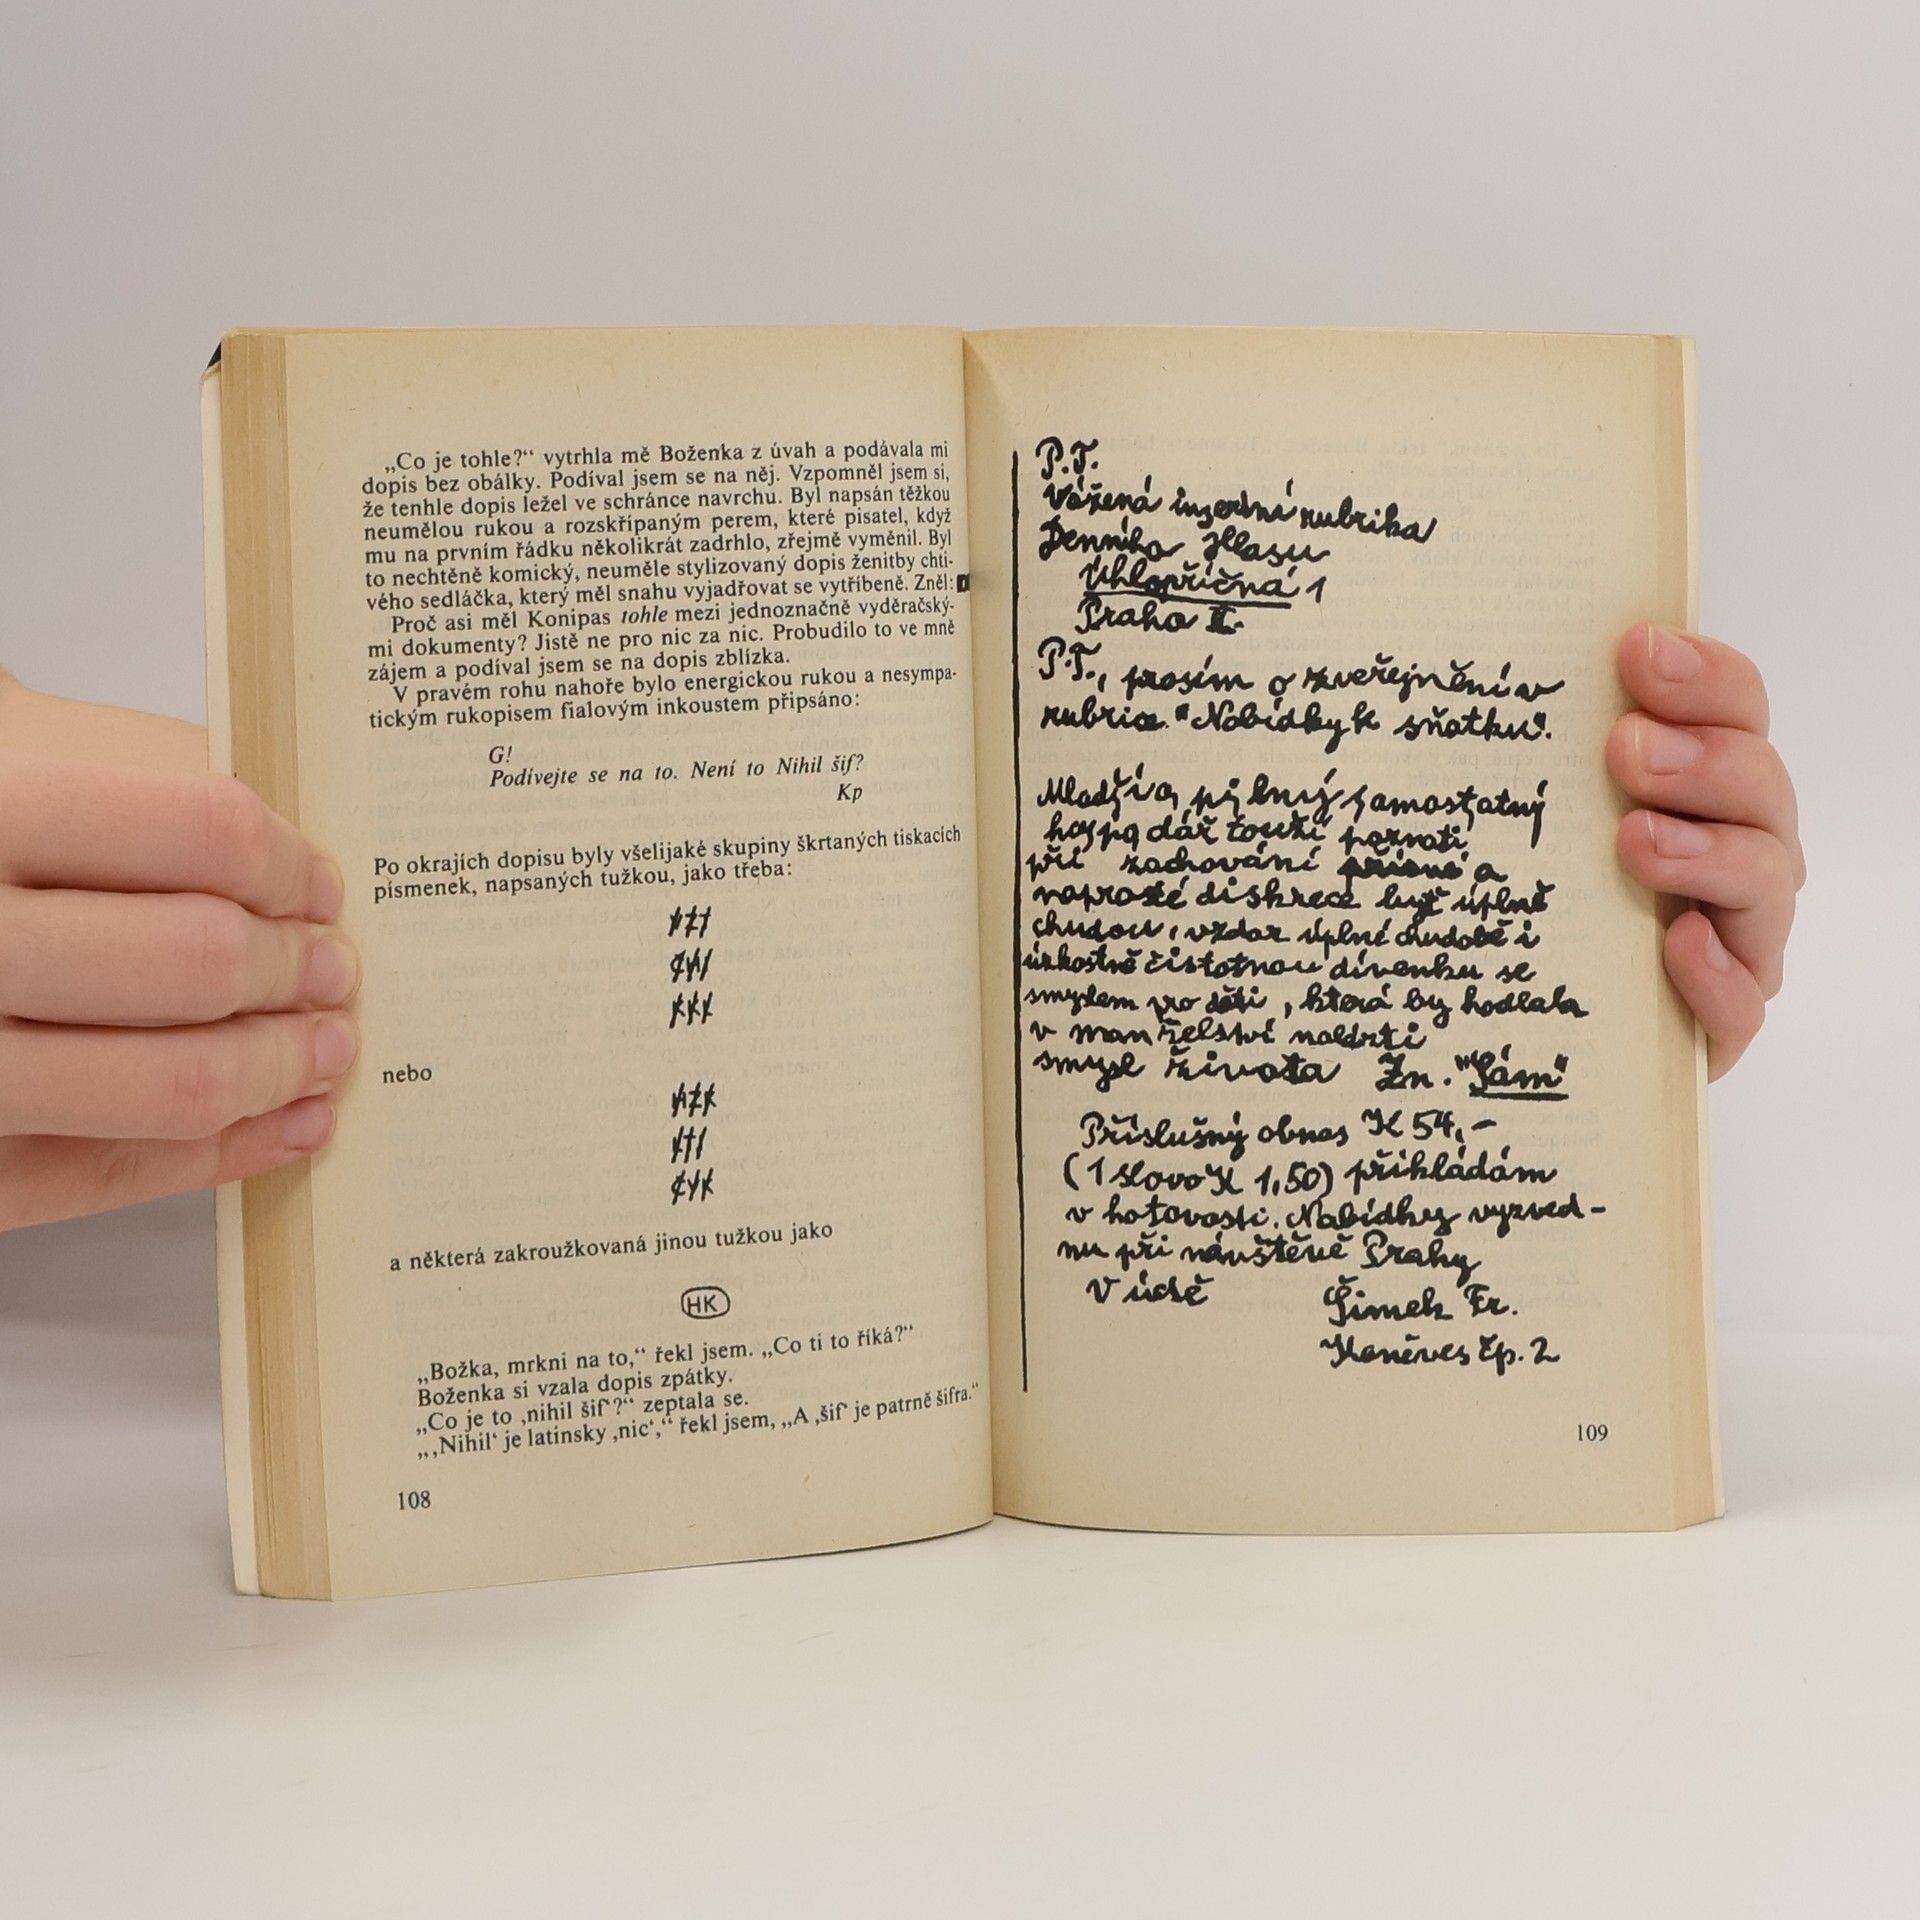 „Co je tohle?“ vytrhla mě Boženka z úvah a podávala mi
dopis bez obálky. Podíval jsem se na něj. Vzpomněl jsem si,
že tenhle dopis ležel ve schránce navrchu. Byl napsán těžkou
neumělou rukou a rozskřípaným perem, které pisatel, když
mu na prvním řádku několikrát zadrhlo, zřejmě vyměnil. Byl
to nechtěně komický, neuměle stylizovaný dopis ženitby chti-
vého sedláčka, který měl snahu vyjadřovat se vytříbeně. Zněl:
Proč asi měl Konipas tohle mezi jednoznačně vyděračský-
mi dokumenty? Jistě ne pro nic za nic. Probudilo to ve mně
zájem a podíval jsem se na dopis zblízka.
V pravém rohu nahoře bylo energickou rukou a nesympa-
tickým rukopisem fialovým inkoustem připsáno:
G!
Podívejte se na to. Není to Nihil šif?
Kp
Po okrajích dopisu byly všelijaké skupiny škrtaných tiskacích
písmenek, napsaných tužkou, jako třeba:
nebo
a některá zakroužkovaná jinou tužkou jako
HK
„Božka, mrkni na to,“ řekl jsem. „Co ti to říká?“
Boženka si vzala dopis zpátky.
„Co je to ‚nihil šif‘?“ zeptala se.
„‚Nihil‘ je latinsky ‚nic‘,“ řekl jsem, „A ‚šif‘ je patrně šifra.“
108
P.T.
Vážená inzertní rubrika
Denního Hlasu
Úhlopříčná 1
Praha II.
P.T., prosím o zveřejnění v
rubrice "Nabídky k sňatku".
Mladší a pilný samostatný
hospodář touží poznati
při zachování přísné a
naprosté diskrece buď úplně
chudou, vzdor úplné chudobě i
úzkostně čistotnou dívenku se
smyslem pro děti, která by hodlala
v manželství nalézti
smysl života Zn. "Sám"
Příslušný obnos K 54,-
(1 slovo K 1,50) přikládám
v hotovosti. Nabídky vyzved-
nu při návštěvě Prahy
V úctě
Šimek Fr.
Koněves čp. 2
109